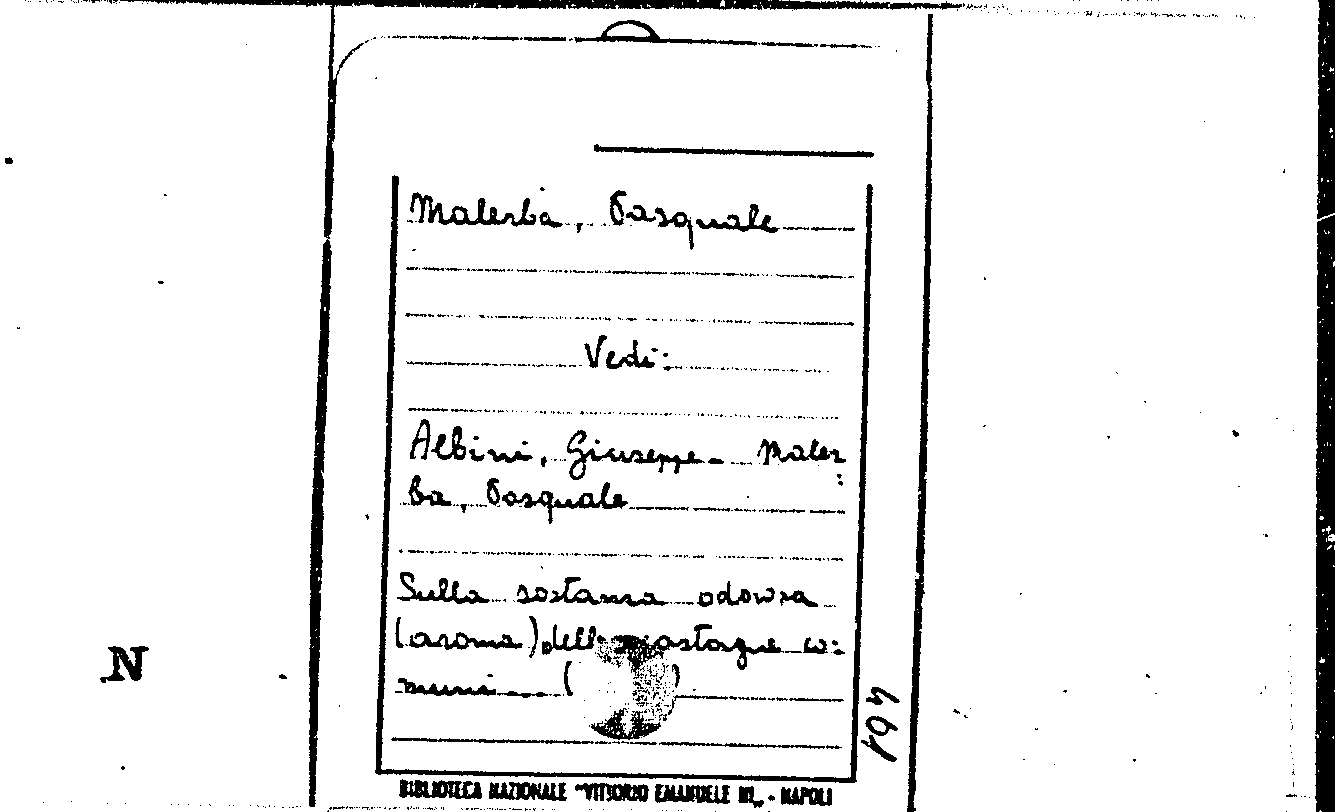 Malerba, Pasquale
Vedi:
Albini, Giuseppe - Maler
ba, Pasquale
Sulla sostanza odorosa
(aroma) delle castagne co=
muni ... (
N
461
BIBLIOTECA NAZIONALE "VITTORIO EMANUELE III" - NAPOLI